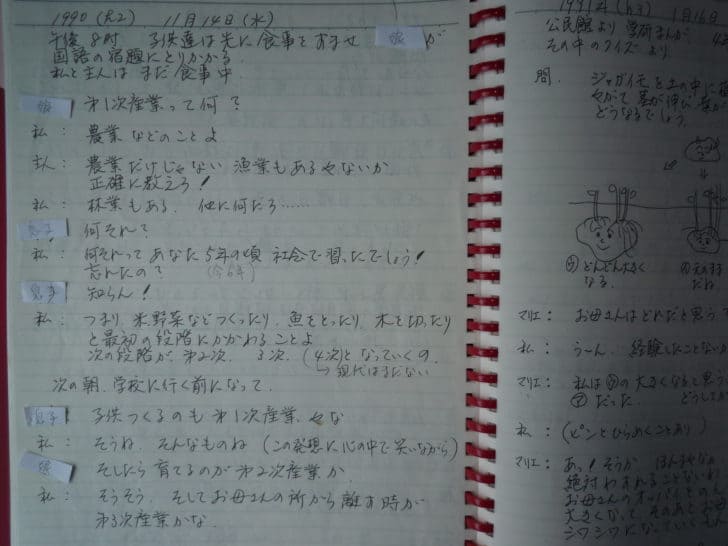 1990 (H.2) 11月14日(水)
午後8時 子供達は先に食事をすませ 娘 が
国語の宿題にとりかかる
私と主人は まだ食事中
娘 第1次産業って何?
私: 農業などのことよ
主人: 農業だけじゃない 漁業もあるやないか
正確に教えろ!
私: 林業もある. 他に何だろ……
息子 何それ?
私: 何それって あなた5年の頃 社会で習ったでしょう!
忘れたの? (今6年)
息子 知らん!
私: つまり 米野菜などつくったり. 魚をとったり. 木を切ったり
と最初の段階にかかわることよ
次の段階が 第2次. 3次. (4次)となっていくの.
→現代はまだない
次の朝. 学校に行く前になって.
息子 子供つくるのも 第1次産業やな
私: そうね. そんなものね (この発想に心の中で笑いながら)
娘 そしたら育てるのが第2次産業か
私: そうそう. そしてお母さんの所から離す時が
第3次産業かな.
1991年(H3) 1月16日
公民館より 学研まんが
その中のクイズより
問. ジャガイモを土の中に
やがて 茎が伸び
どうなるでしょう.
㋒どんどん大きく
なる.
だね
マリエ: お母さんはどれだと思う
私: うーん. 経験したことない
マリエ: 私は㋒の大きくなると思う
㋐だった. どうしてか
私: (ピンとひらめくことあり)
マリエ: あっ! そうか ほんまやな
絶対わすれることないわ
お母さんのオッパイと
大きくなって. そのあと
シワシワになっていても